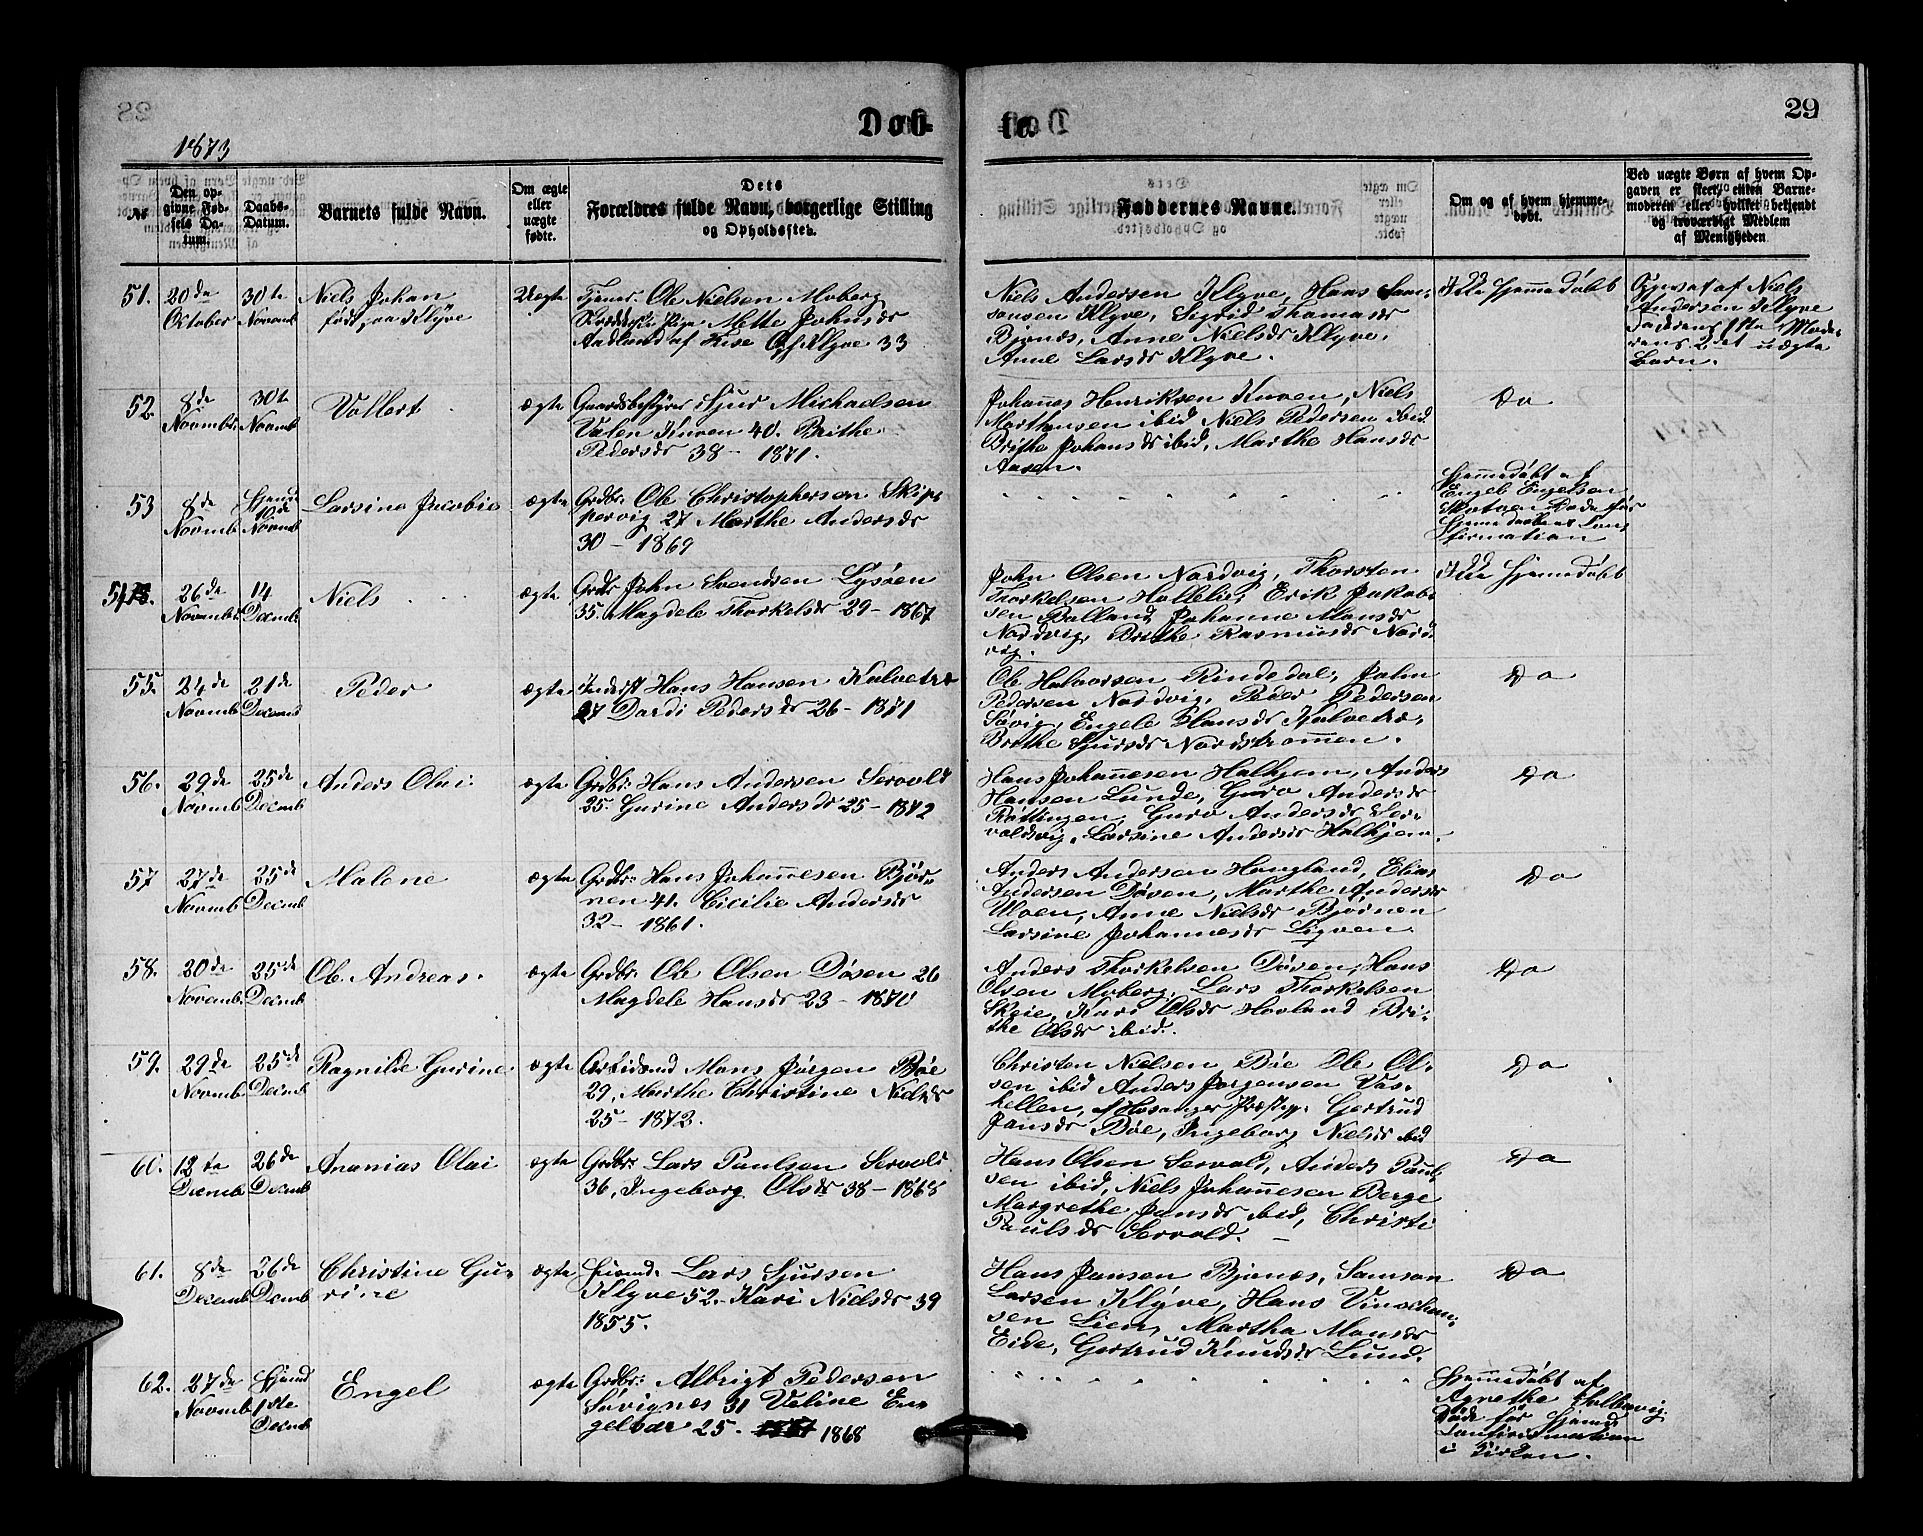 29
Døb-
te.
1873
No.
Den op-
givne Fød-
sels Da-
tum.
Daabs-
Datum.
Barnets fulde Navn.
Om ægte
eller
uægte
fødte.
Dets
Forældres fulde Navn, borgerlige Stilling
og Opholdssted.
Faddernes Navne.
Om og af hvem hjemme-
døbt.
Ved uægte Børn af hvem Op-
gaven er skeet, enten Barne-
moderen eller hvilket bekjendt
og troværdigt Medlem
af Menigheden
51. 20de October 30te Novemb Niels Johan
født paa Klyve
Uægte
Tjener Ole Nielsen Moberg
Pige Mette Johnsdr
Aadland af Fuse Klyve 33
Niels Andersen Klyve, Hans Sam-
sonsen Klyve, Sigrid Thomasdr
Bjønæs, Anne Nielsdr Klyve,
Anne Larsdr Klyve.
Ikke hjemmedøbt
Opgivet af Niels
Andersen Klyve
Faderens 1ste Mode-
rens 2det uægte
Barn.
52. 8de Novmbr. 30te Novmb Vallert ægte
Gaardsbestyrer Sjur Michaelsen
Valen Kuven 40. Brithe
Pedersdr 38 – 1871.
Johannes Henriksen Kuven, Niels
Mathiasen ibid Niels Pedersen ibid
Brithe Johansdr ibid, Marthe Hansdr
Aasen.
Do
53 8de Novmb. Hjemd 10de Novmb Larsine Jacobie ægte
Grdbr. Ole Christophersen Skip-
pervig 27 Marthe Andersdr
30 – 1869
Hjemmedøbt af
Engel Engelsen
Døde før
Hjemmedaabens Con-
firmation
54. 26de Novmbr. 14 Decmb. Niels ægte
Grdbr John Svendsen Lysøen
35. Magdele Thorkelsdr 29 – 1867
John Olsen Nordvig, Thorsten
Thorkelsen Halleli, Erik Jakob-
sen Balland, Johanne Monsdr
Nordvig, Brithe Rasmusdr Nord-
vig.
Ikke hjemmedøbt
55. 24de Novmb 21de Decemb Peder ægte
Inderst Hans Hansen Kalvetræ
27 Dordi Pedersdr 26 – 1871
Ole Halvorsen Rindedal, John
Pedersen Nordvig, Peder Pedersen
Søvig, Engele Hansdr Kalvetræ,
Brithe Sjursdr Nordstrømmen.
Do
56. 29de Novmb 25de Decemb Anders Olai ægte
Grdbr. Hans Andersen Servold
25. Gurine Andersdr 25 – 1872
Hans Johannesen Halhjem, Anders
Hansen Lunde, Guro Andersdr
Røttingen, Guro Andersdr Ser-
voldsvig, Larsine Andersdr Halhjem.
Do
57 27de Novmb 25de Decmb. Malene ægte
Grdbr. Hans Johannesen Bjør-
nen 41. Cicilie Andersdr
32 – 1861.
Anders Andersen Haugland, Elias
Andersen Døsen, Marthe Andersdr
Moen, Anne Nielsdr Bjørnen
Larsine Johannesdr Ligven.
Do
58. 20de Novemb. 25de Decmb Ole Andreas. ægte
Grdbr. Ole Olsen Døsen 26
Magdele Hansdr 23 – 1870
Anders Thorkelsen Døsen, Hans
Olsen Moberg, Lars Thorkelsen
Skeie, Kari Olsdr Hovland Bri-
the Olsdr ibid.
Do
59. 29de Novmb. 25de Decmb Ragnilde Gurine ægte
Arbeidsmd Mons Jørgen Bøe
29, Marthe Christine Nielsdr
25 – 1872.
Christen Nielsen Bøe Ole Ol-
sen ibid Anders Jørgensen Vas-
hellen, af Hosanger Præstgj. Gertrud
Jansdr Bøe, Ingeborg Nielsdr ibid
Do
60. 12te Decmb. 26de Decmb Ananias Olai ægte
Grdbr. Lars Paulsen Servold
36, Ingeborg Olsdr 38 – 1868
Hans Olsen Servold, Anders Paul-
sen ibid, Niels Johannesen Berge
Margrethe Jansdr ibid, Christi
Paulsdr Servold. –
Do
61. 8de Decemb 26de Decmb Christine Gu-
rine
ægte
Huusmd. Lars Sjursen
Klyve 52. Kari Nielsdr 39
1855.
Hans Jansen Bjønæs, Samson
Larsen Klyve, Hans
sen Lien, Martha Monsdr
Eide, Gertrud Knudsdr Lund.
Do
62. 27de Novmb Hjemd 1ste Decmb Engel ægte
Grdbr. Albrigt Pedersen
Søvignes 31 Valine En-
gelsdr 25. 1868
Hjemmedøbt af
Agnethe Solbavig
Døde før Hjemd
Confirmation
i Kirken.